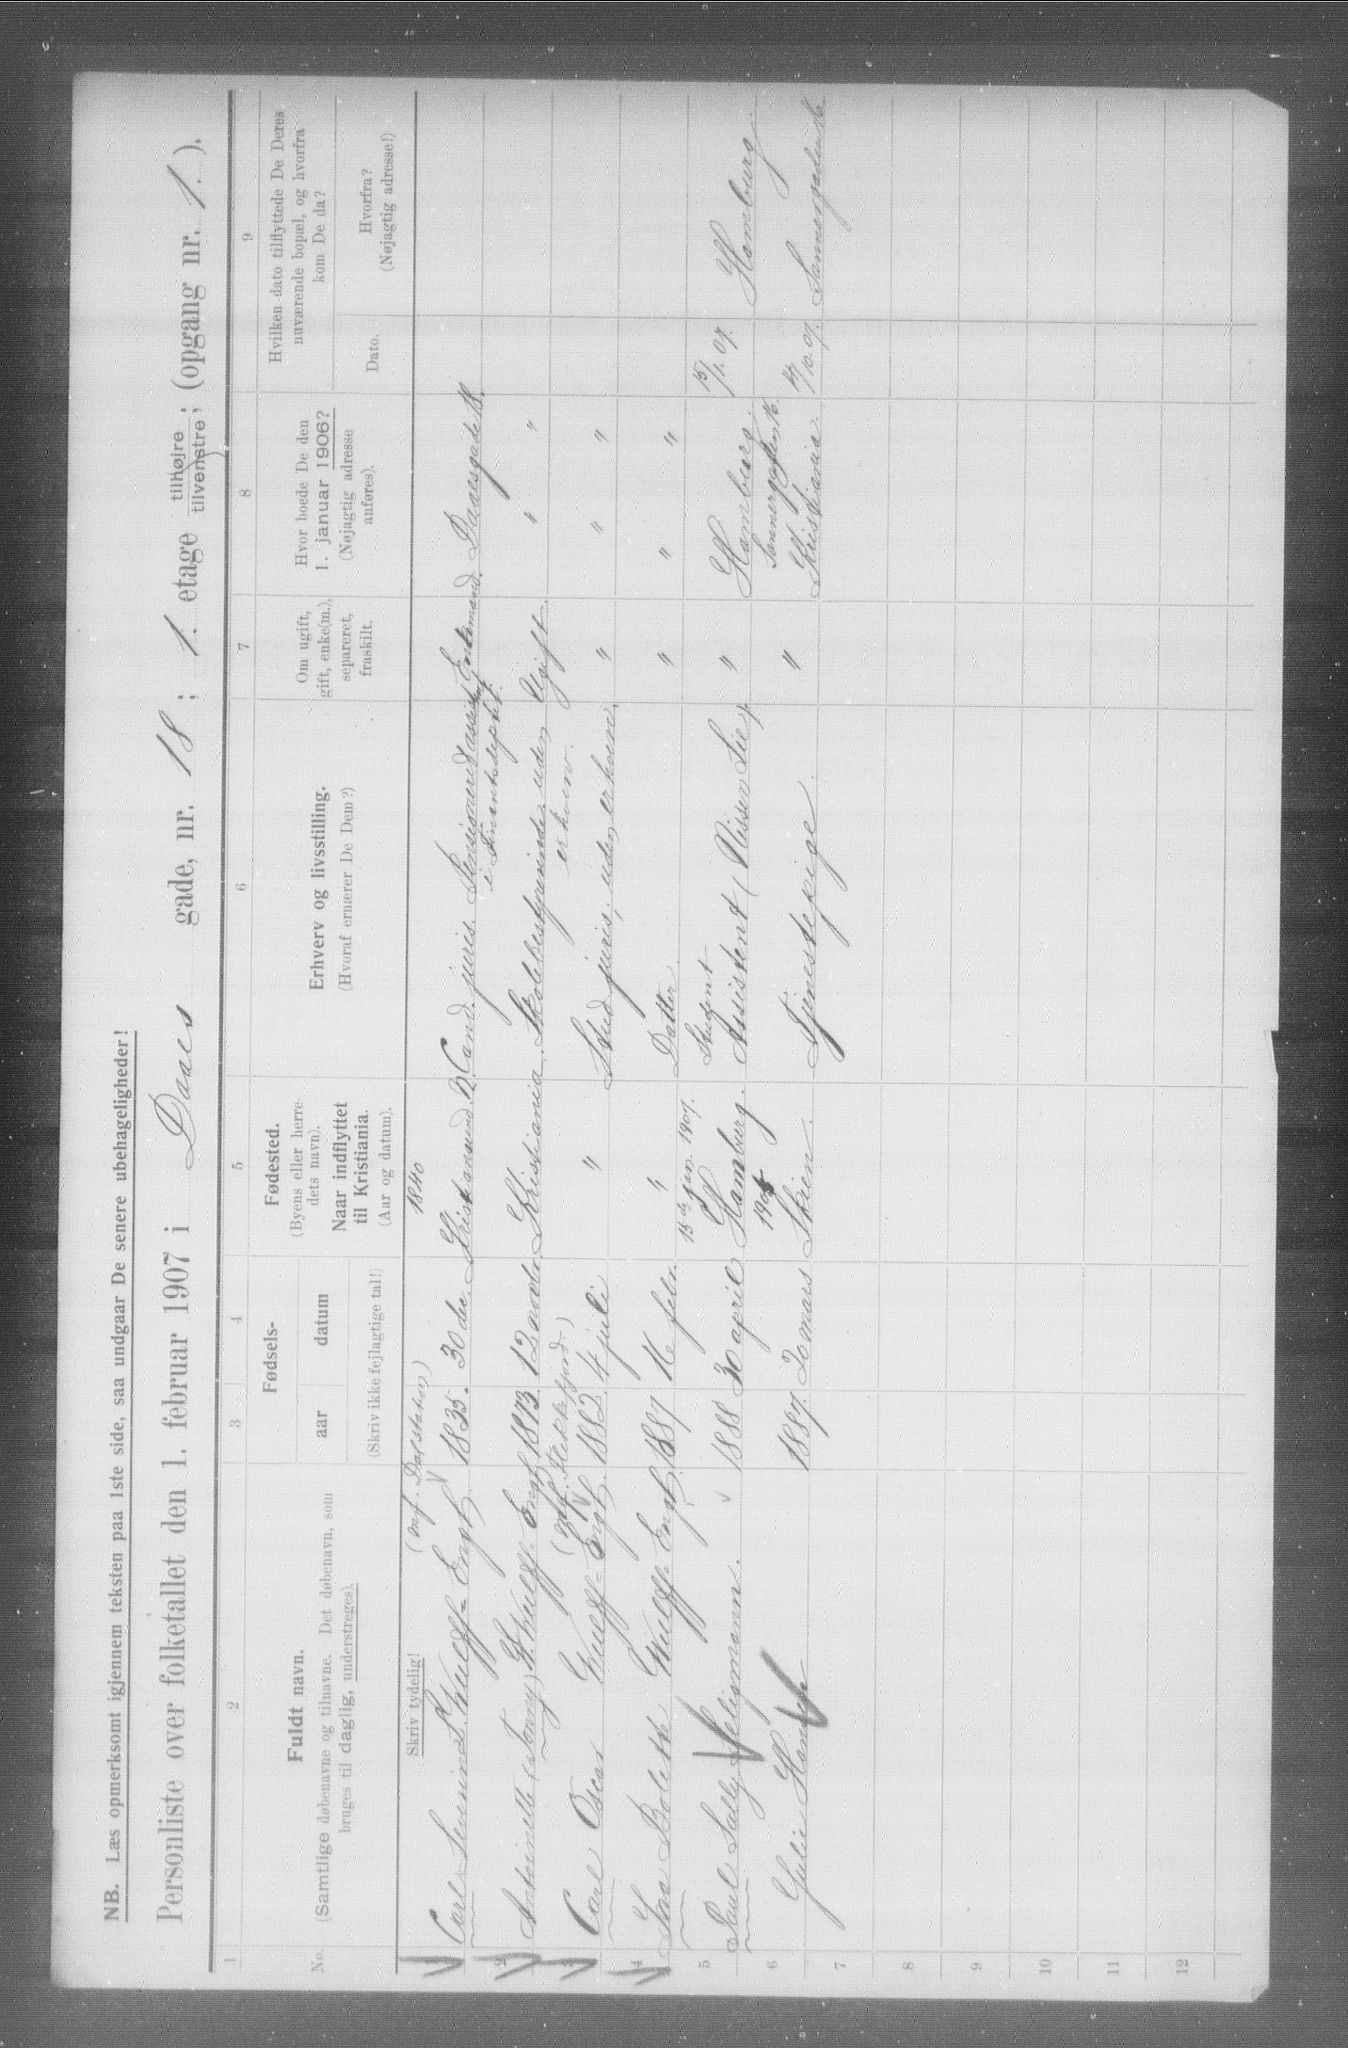 NB. Læs opmerksomt igjennem teksten paa 1ste side, saa undgaar De senere ubehageligheder!
Personliste over folketallet den 1. februar 1907 i Daaes gade, nr. 18; 1. etage tilhøjre tilvenstre; (opgang nr. 1.).
1 2 3 4 5 6 7 8 9
No.
Fuldt navn.
(Samtlige døbenavne og tilnavne. Det døbenavn, som
bruges til daglig, understreges).
Fødsels-
aar datum
(Skriv ikke fejlagtige tal!)
Fødested.
(Byens eller herre-
dets navn).
Naar indflyttet
til Kristiania.
(Aar og datum).
Erhverv og livsstilling.
(Hvoraf ernærer De Dem?)
Om ugift,
gift, enke(m.),
separeret,
fraskilt.
Hvor boede De den
1. januar 1906?
(Nøjagtig adresse
anføres).
Hvilken dato tilflyttede De Deres
nuværende bopæl, og hvorfra
kom De da?
Dato.
Hvorfra?
(Nøjagtig adresse!)
Skriv tydelig!
1840
Carl Severin Wulff-Engh 1835. 30 dec. Kristiansund N. Cand. juris. Pensioneret Enkemand. Daaesgade 18.
i
2 Antoinette (Tonny) Wulff-Engh 1873 12 novbr. Kristiania. Skolebestyrerinde, uden Ugift. " "
erhverv
3 Carl Oscar Wulff-Engh. 1882 4 juli " Stud juris, uden erhverv. " " "
4 Ina Bolette Wulff-Engh. 1887 16 febr. " Datter. " " "
15de jan. 1907. Student
5 Paul Sally Seligmann. 1888 30 april Hamburg. Assistent (Nissen Lie). " Hamburg. 15/1. 07. Hamburg.
1905
6 Julie Hansen 1887. 20 mars Skien. Tjenestepige. " Kristiania.
7
8
9
10
11
12